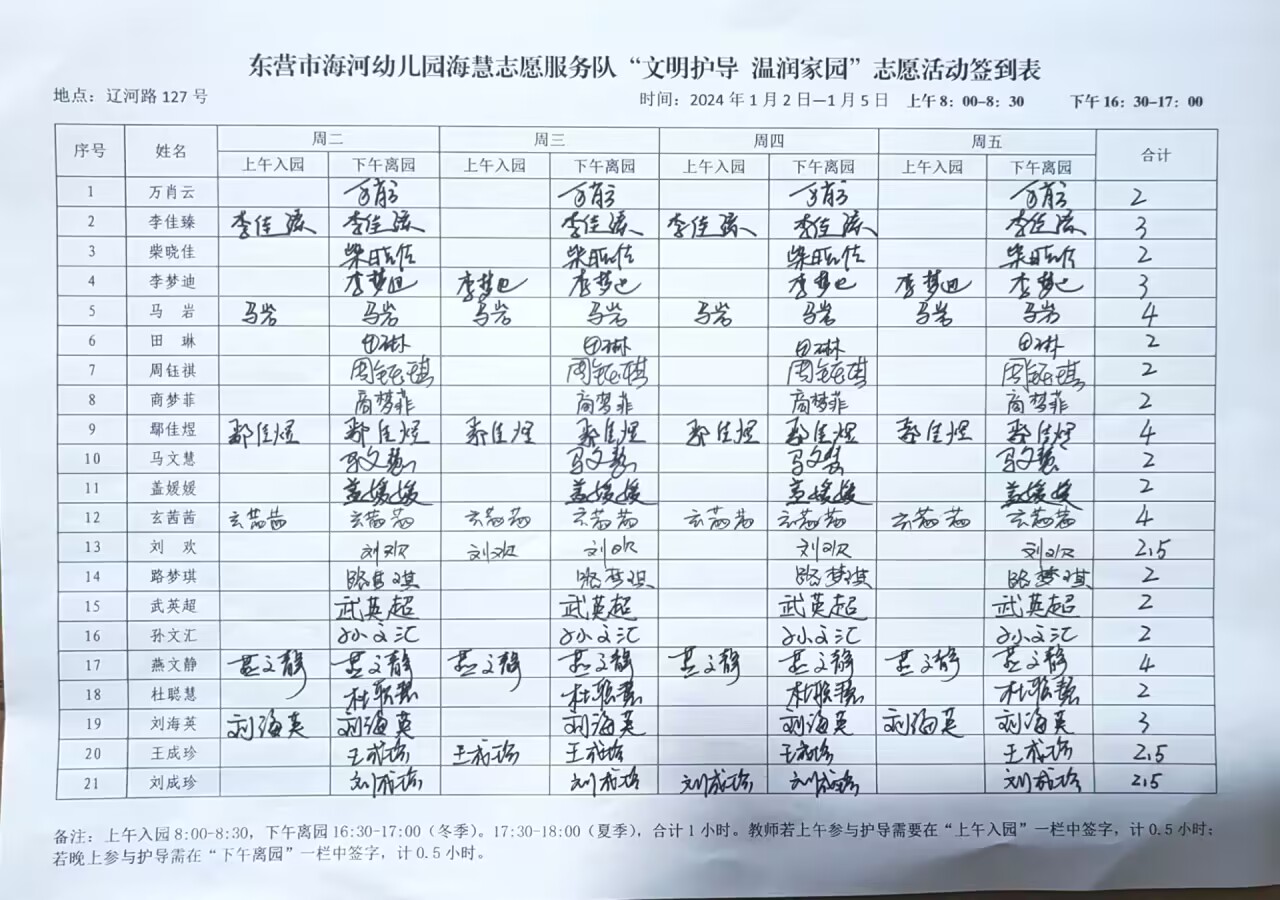 东营市海河幼儿园海慧志愿服务队“文明护导 温润家园”志愿活动签到表
地点：辽河路 127 号 时间：2024 年 1 月 2 日—1 月 5 日 上午 8：00-8：30 下午 16：30-17：00
序号 姓名 周二 周三 周四 周五 合计
上午入园 下午离园 上午入园 下午离园 上午入园 下午离园 上午入园 下午离园
1 万肖云 万肖云 万肖云 万肖云 万肖云 2
2 李佳臻 李佳臻 李佳臻 李佳臻 李佳臻 李佳臻 李佳臻 3
3 柴晓佳 柴晓佳 柴晓佳 柴晓佳 柴晓佳 2
4 李梦迪 李梦迪 李梦迪 李梦迪 李梦迪 李梦迪 李梦迪 3
5 马 岩 马岩 马岩 马岩 马岩 马岩 马岩 马岩 马岩 4
6 田 琳 田琳 田琳 田琳 田琳 2
7 周钰祺 周钰祺 周钰祺 周钰祺 周钰祺 2
8 商梦菲 商梦菲 商梦菲 商梦菲 商梦菲 2
9 鄢佳煜 鄢佳煜 鄢佳煜 鄢佳煜 鄢佳煜 鄢佳煜 鄢佳煜 鄢佳煜 鄢佳煜 4
10 马文慧 马文慧 马文慧 马文慧 马文慧 2
11 盖媛媛 盖媛媛 盖媛媛 盖媛媛 盖媛媛 2
12 玄茜茜 玄茜茜 玄茜茜 玄茜茜 玄茜茜 玄茜茜 玄茜茜 玄茜茜 玄茜茜 4
13 刘 欢 刘欢 刘欢 刘欢 刘欢 刘欢 2.5
14 路梦琪 路梦琪 路梦琪 路梦琪 路梦琪 2
15 武英超 武英超 武英超 武英超 武英超 2
16 孙文汇 孙文汇 孙文汇 孙文汇 孙文汇 2
17 燕文静 燕文静 燕文静 燕文静 燕文静 燕文静 燕文静 燕文静 燕文静 4
18 杜聪慧 杜聪慧 杜聪慧 杜聪慧 杜聪慧 2
19 刘海英 刘海英 刘海英 刘海英 刘海英 刘海英 刘海英 3
20 王成珍 王成珍 王成珍 王成珍 王成珍 王成珍 2.5
21 刘成珍 刘成珍 刘成珍 刘成珍 刘成珍 刘成珍 2.5
备注：上午入园 8:00-8:30，下午离园 16:30-17:00（冬季）。17:30-18:00（夏季），合计 1 小时。教师若上午参与护导需要在“上午入园”一栏中签字，计 0.5 小时；
若晚上参与护导需在“下午离园”一栏中签字，计 0.5 小时。